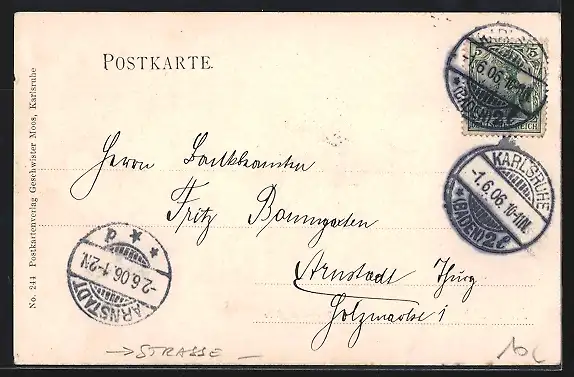 POSTKARTE.
KARLSRUHE
-1.6.06.10-11N.
*(BADEN)2
REICH
KARLSRUHE
-1.6.06.10-11N.
*(BADEN)2
Herrn Bankbeamten
Fritz Baumgarten
Arnstadt Thürg
Holzmarkt 1
ARNSTADT
-2.6.06.1-2N.
No. 244 Postkartenverlag Geschwister Moos, Karlsruhe
→STRASSE –